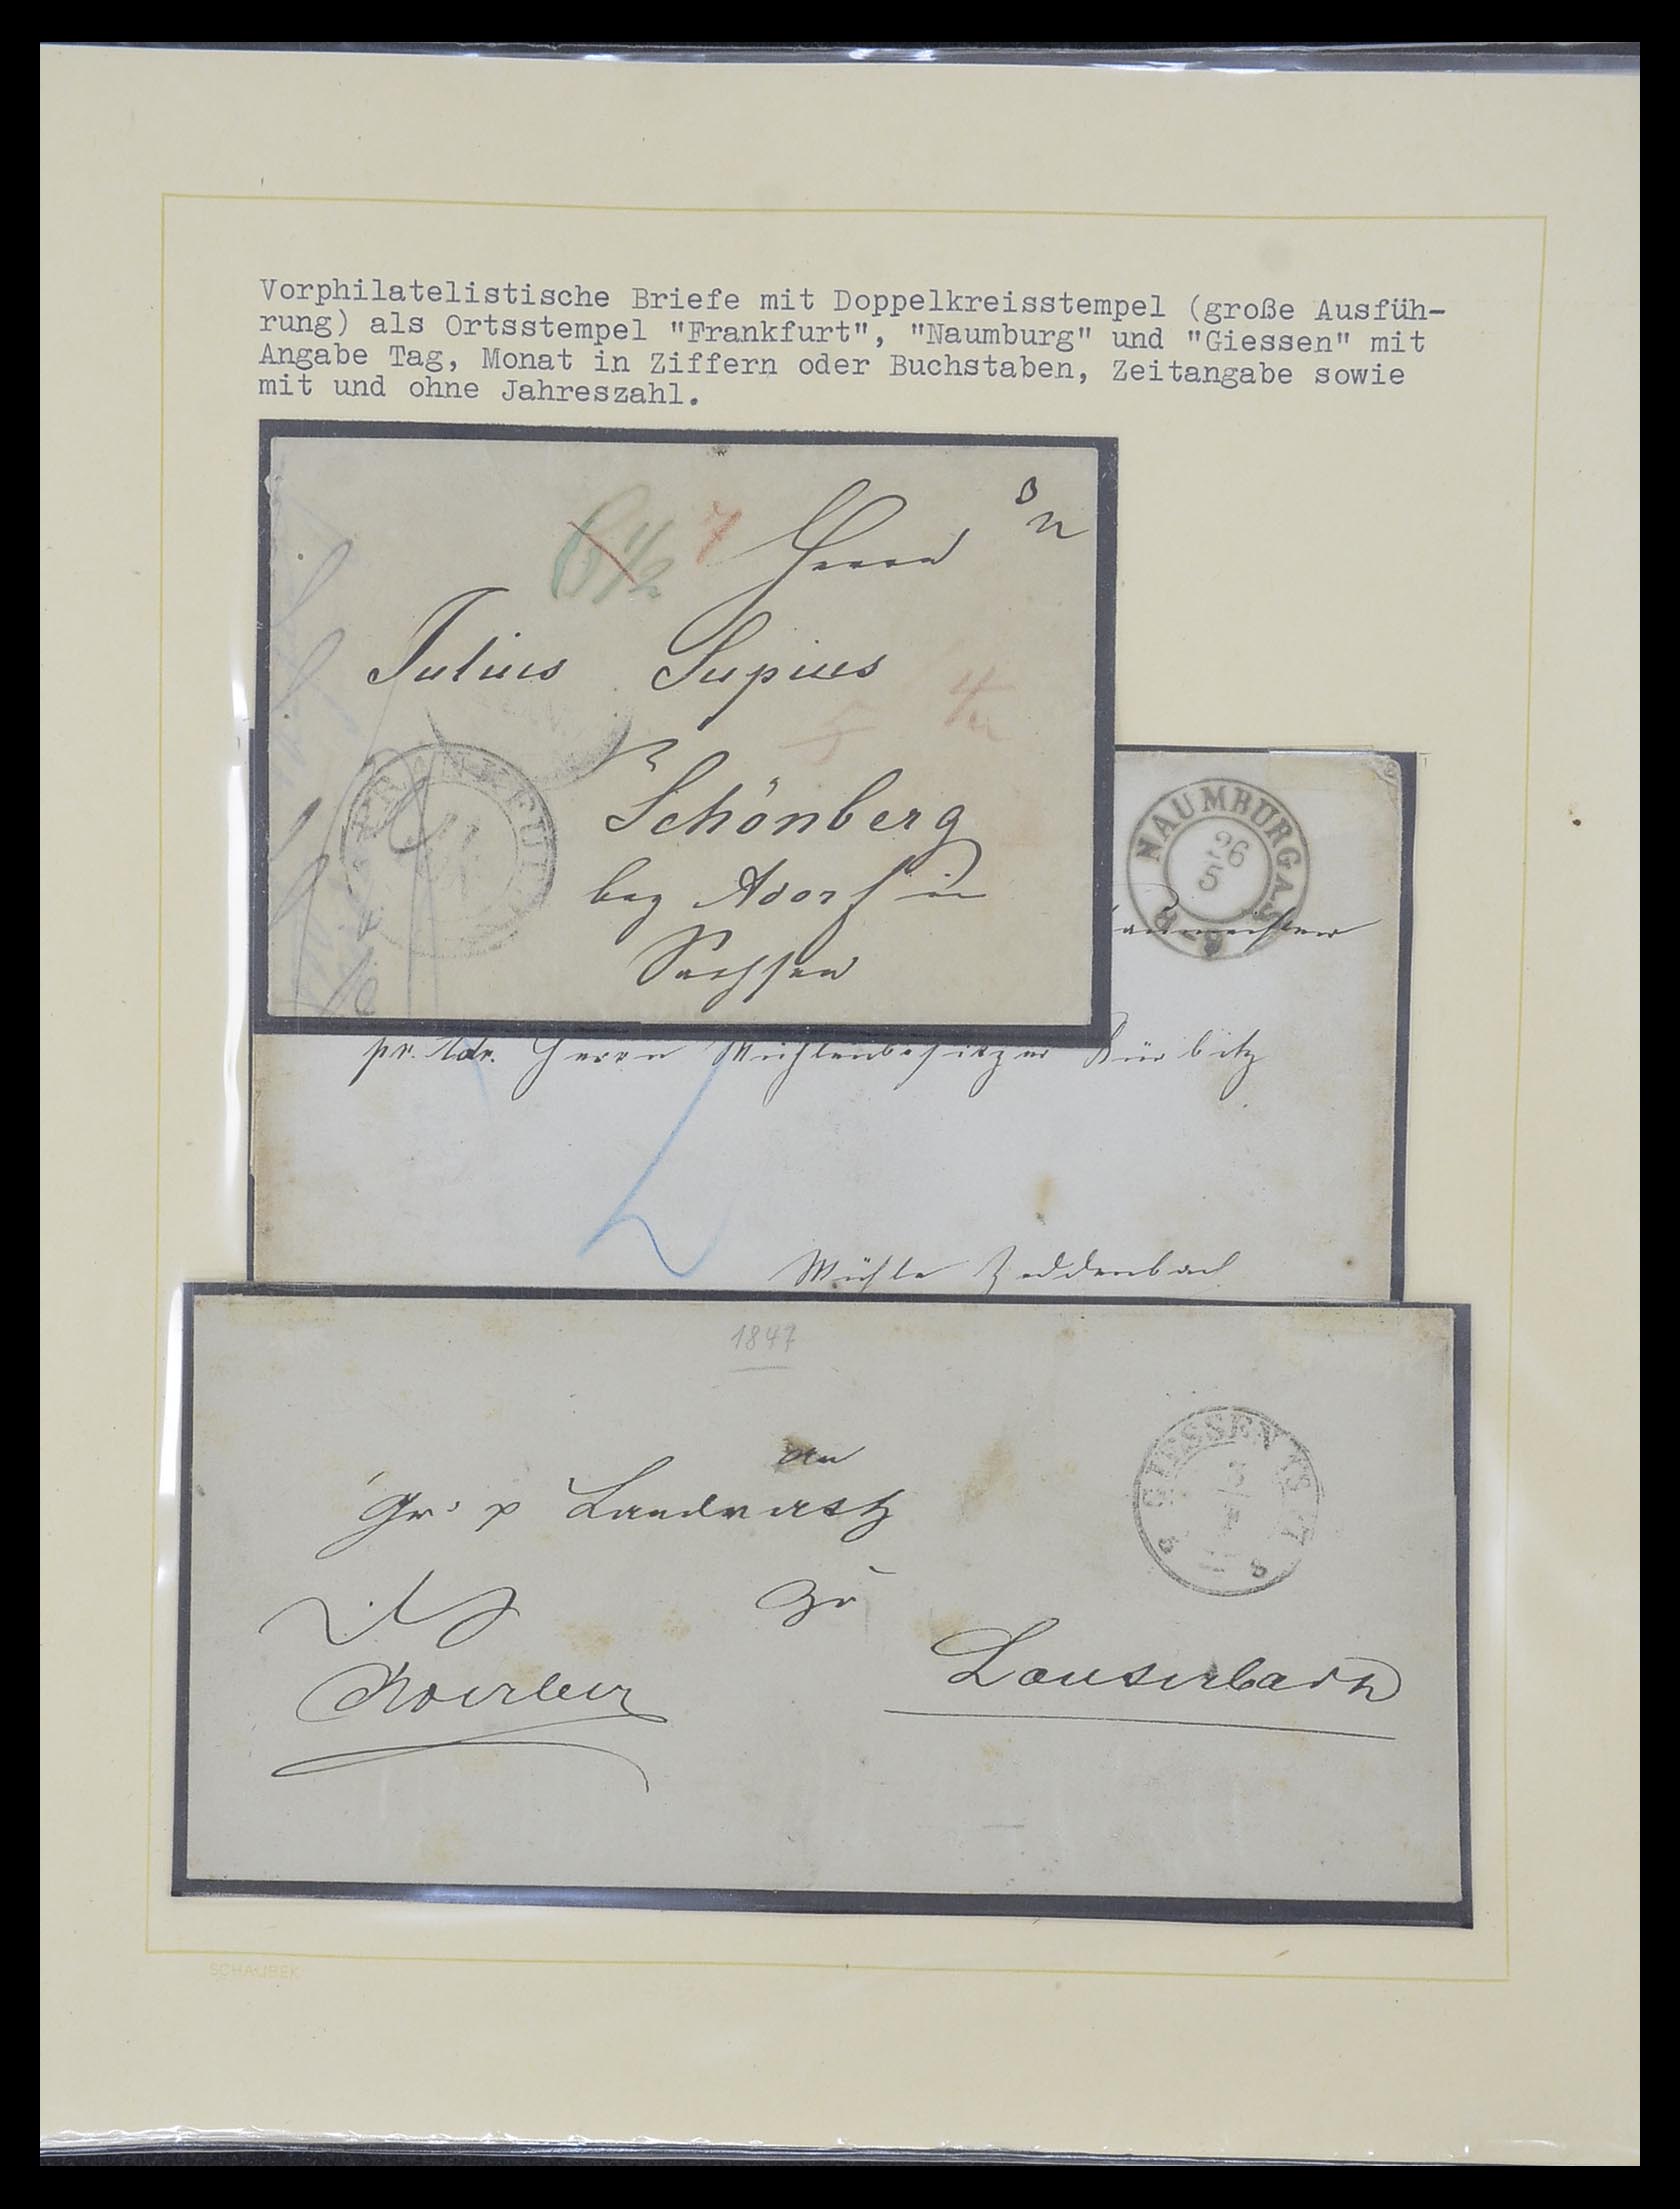 Vorphilatelistische Briefe mit Doppelkreisstempel (große Ausfüh-
rung) als Ortsstempel "Frankfurt", "Naumburg" und "Giessen" mit
Angabe Tag, Monat in Ziffern oder Buchstaben, Zeitangabe sowie
mit und ohne Jahreszahl.
6 1/2 7 Herrn
Julius Supius
FRANKFURT
Schönberg
bey Adorf in
Sachsen
NAUMBURG A.S.
26
5
pr. Adr. Herrn Mühlenbesitzer Kürbitz
Mühle Zeddenbach
1847
an
Landrath
zu
GIESSEN
Lauterbach
SCHAUBEK